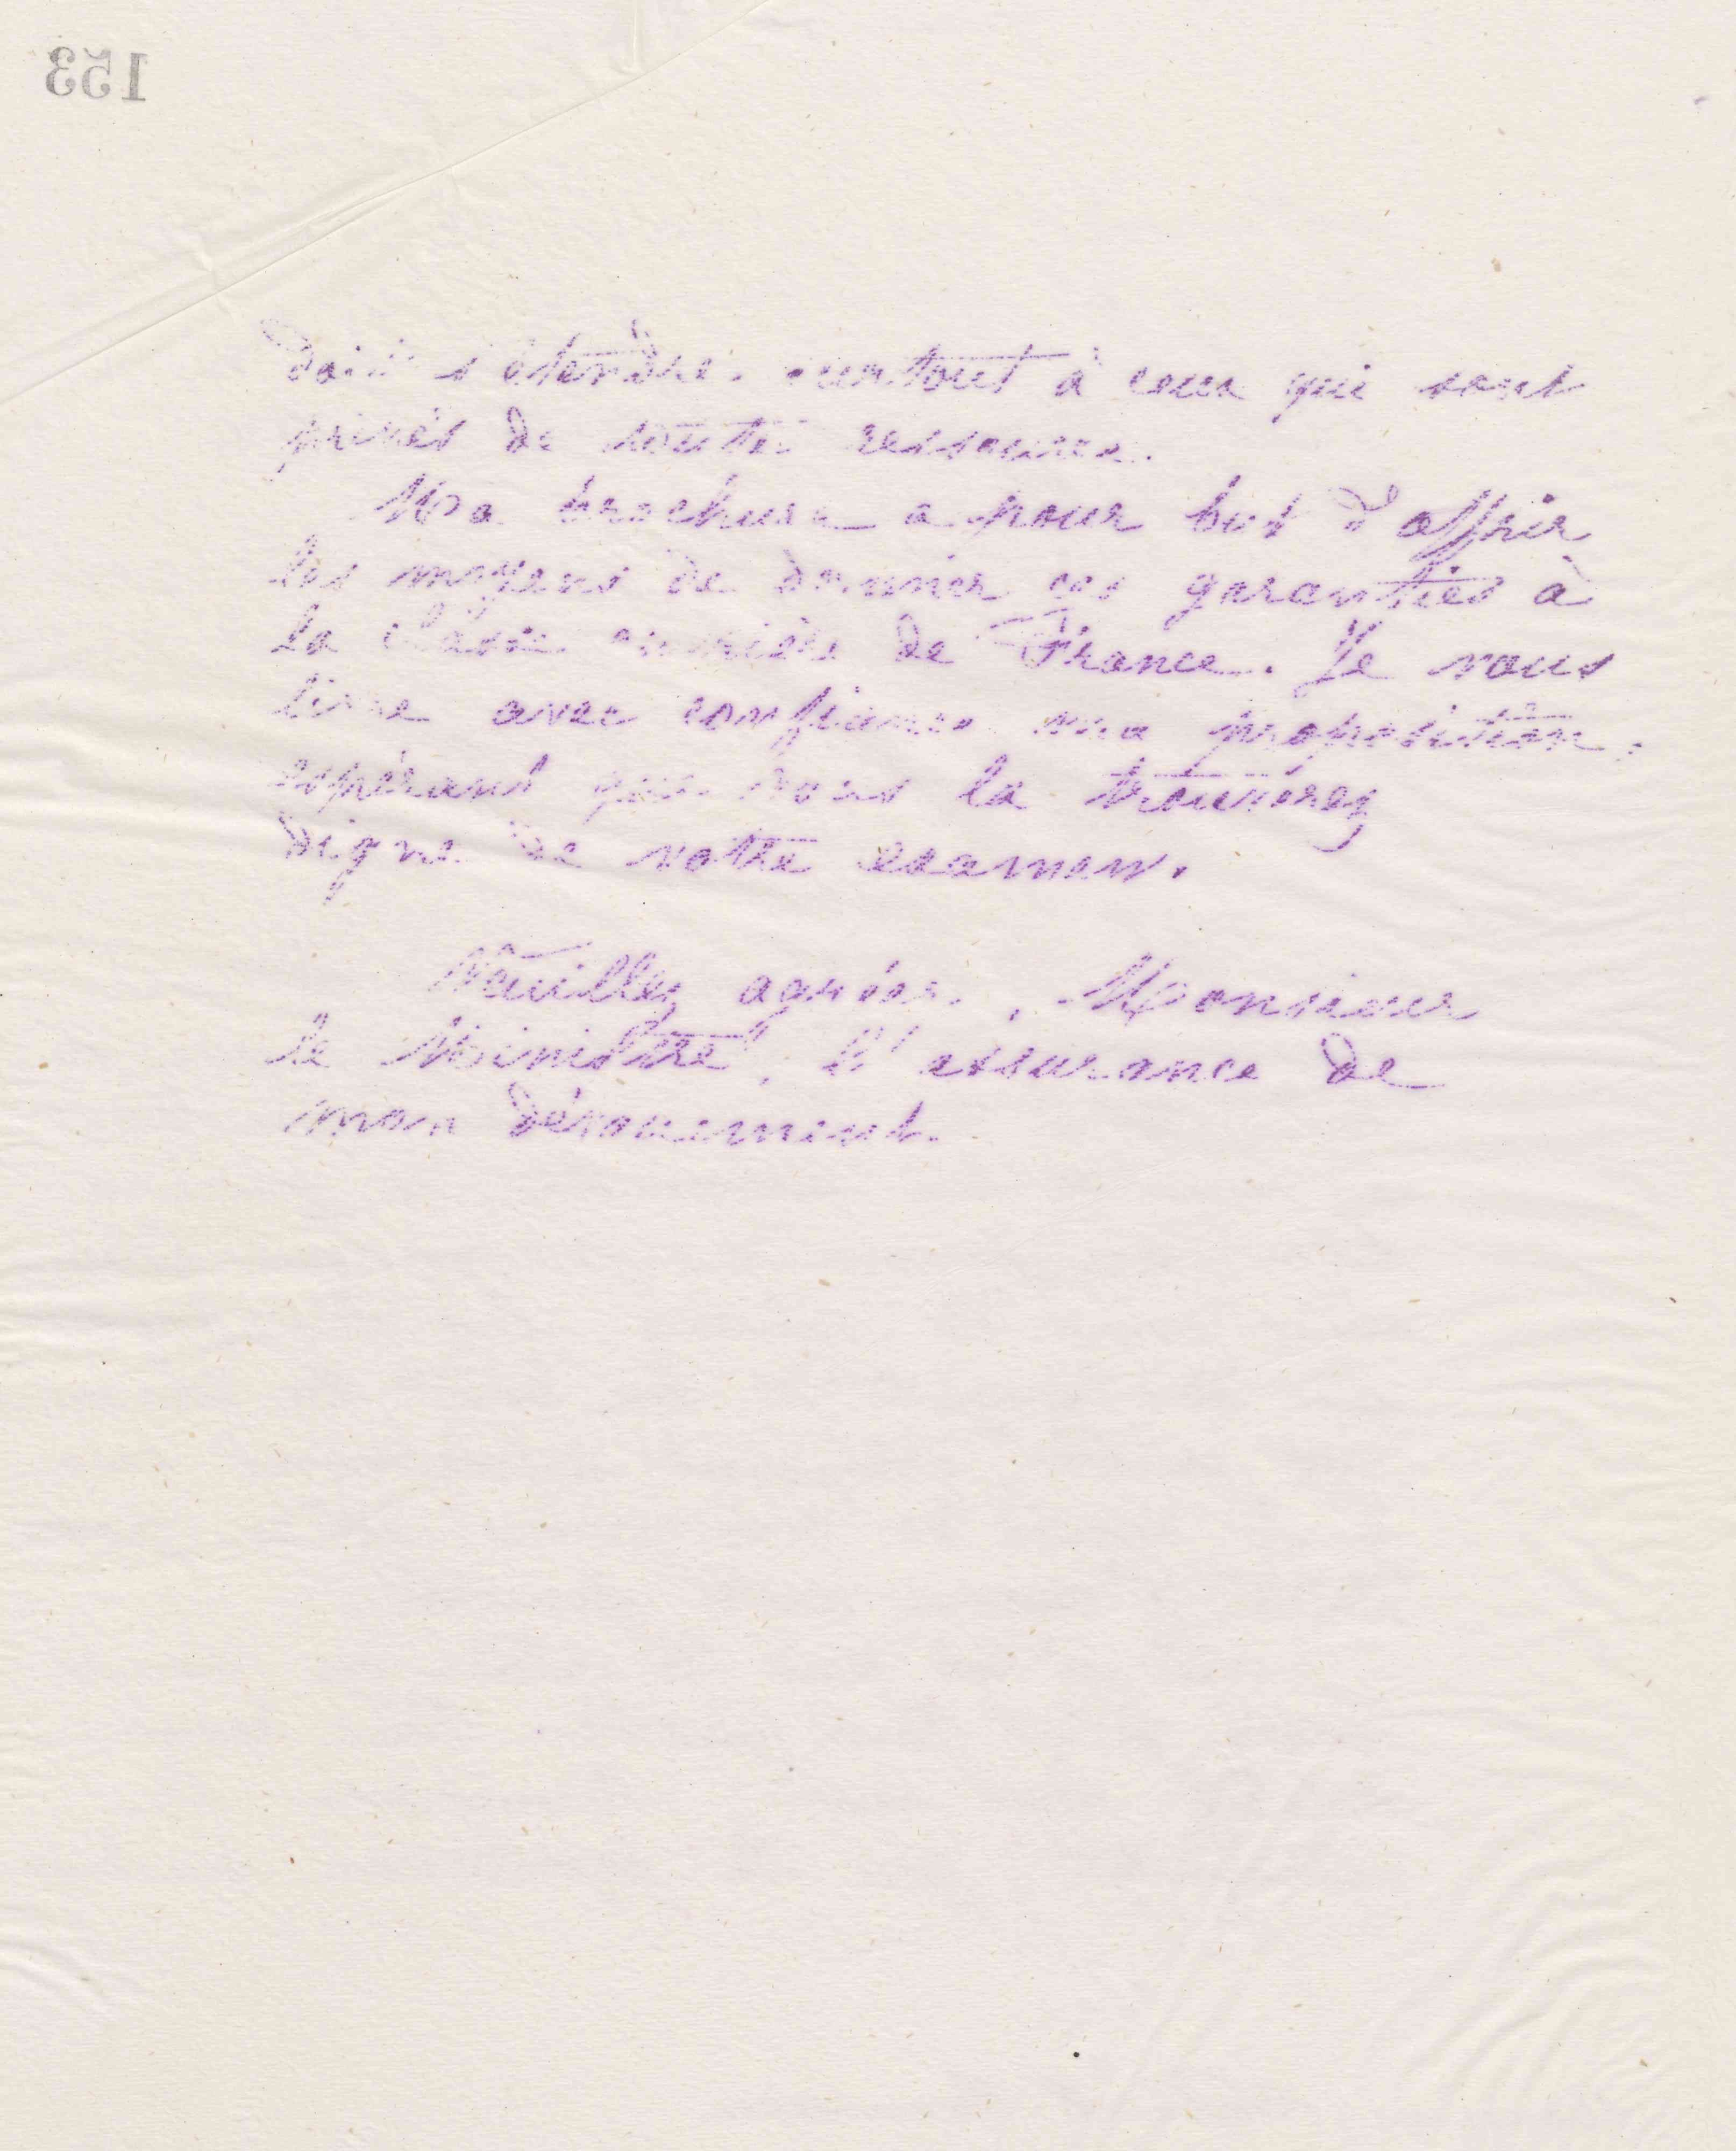 153
doit s'étendre surtout à ceux qui sont
privés de toutes ressources.
Ma brochure a pour but d'offrir
les moyens de donner ces garanties à
la classe ouvrière de France. Je vous
livre avec confiance ma proposition,
espérant que vous la trouverez
digne de votre examen.
Veuillez agréer, Monsieur
le Ministre, l'assurance de
mon dévouement.